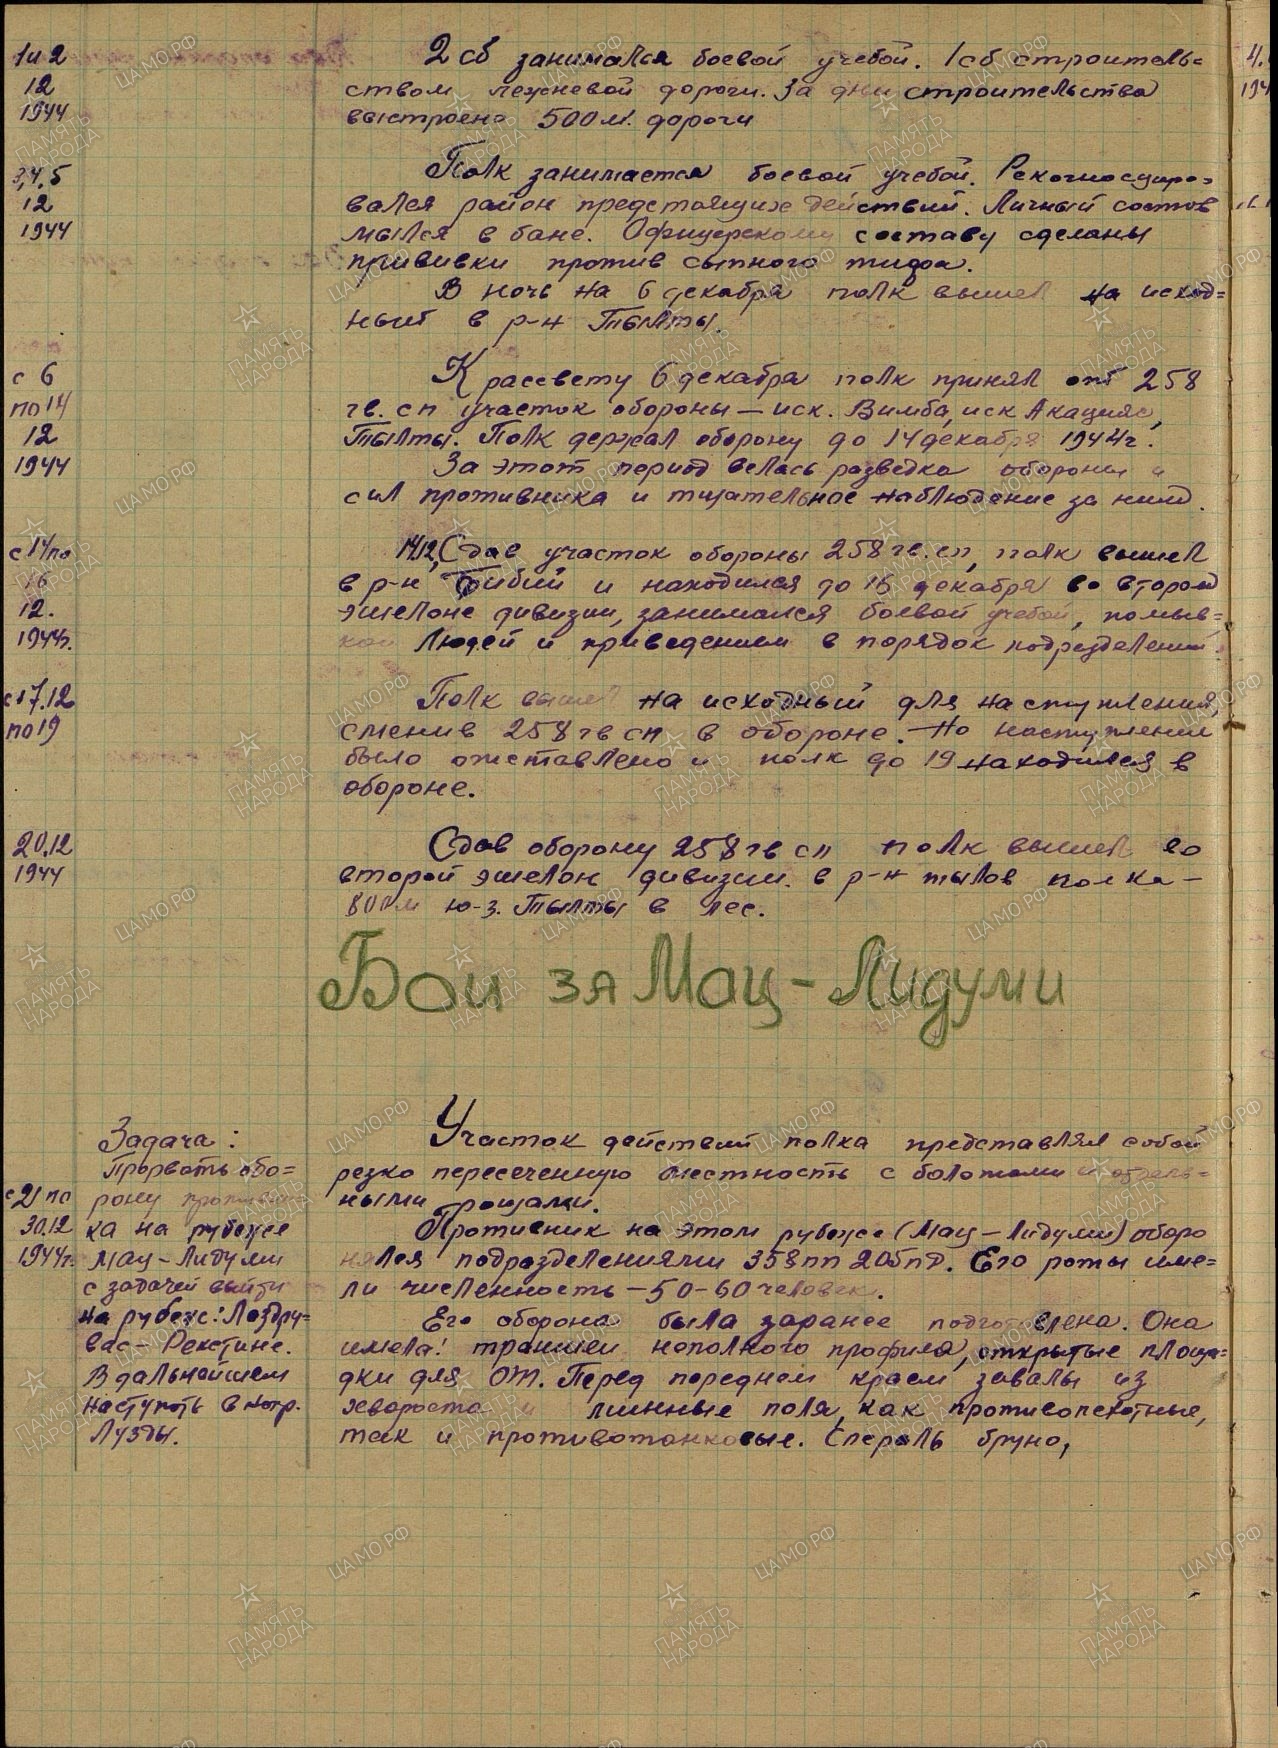 1 и 2
12
1944
2 сб занимался боевой учебой. 1 сб строитель=
ством лежневой дороги. За дни строительства
выстроено 500 м. дороги
3,4,5
12
1944
Полк занимается боевой учебой. Рекогносциро=
вался район предстоящих действий. Личный состав
мылся в бане. Офицерскому составу сделаны
прививки против сыпного тифа.
В ночь на 6 декабря полк вышел на исход=
ный в р-н Тылты.
с 6
по 14
12
1944
К рассвету 6 декабря полк принял от 258
гв. сп участок обороны — иск. Вимба, иск Акацияс,
Тылты. Полк держал оборону до 14 декабря 1944 г.
За этот период велась разведка обороны и
сил противника и тщательное наблюдение за ним.
с 14 по
16
12.
1944г.
14.12. Сдав участок обороны 258 гв. сп, полк вышел
в р-н Бибий и находился до 16 декабря во втором
эшелоне дивизии, занимался боевой учебой, помыв=
кой людей и приведением в порядок подразделений.
с 17.12
по 19
Полк вышел на исходный для наступления,
сменив 258 гв сп в обороне. Но наступление
было отставлено и полк до 19 находился в
обороне.
20.12
1944
Сдав оборону 258 гв сп полк вышел во
второй эшелон дивизии. в р-н тылов полка —
800 м ю-з. Тылты в лес.
Бои за Мац-Лидуми
с 21 по
30.12
1944г.
Задача:
Прорвать обо=
рону противни=
ка на рубеже
Мац-Лидуми
с задачей выйти
на рубеж: Лаздру=
вас - Рекстине.
В дальнейшем
наступать в напр.
Лузды.
Участок действий полка представлял собой
резко пересеченную местность с болотами и отдель=
ными рощами.
Противник на этом рубеже (Мац-Лидуми) оборо
нялся подразделениями 358 пп 205 пд. Его роты име=
ли численность — 50-60 человек.
Его оборона была заранее подготовлена. Она
имела: траншеи неполного профиля, открытые площа=
дки для ОТ. Перед передним краем завалы из
хвороста и минные поля, как противопехотные,
так и противотанковые. Спераль бруно,